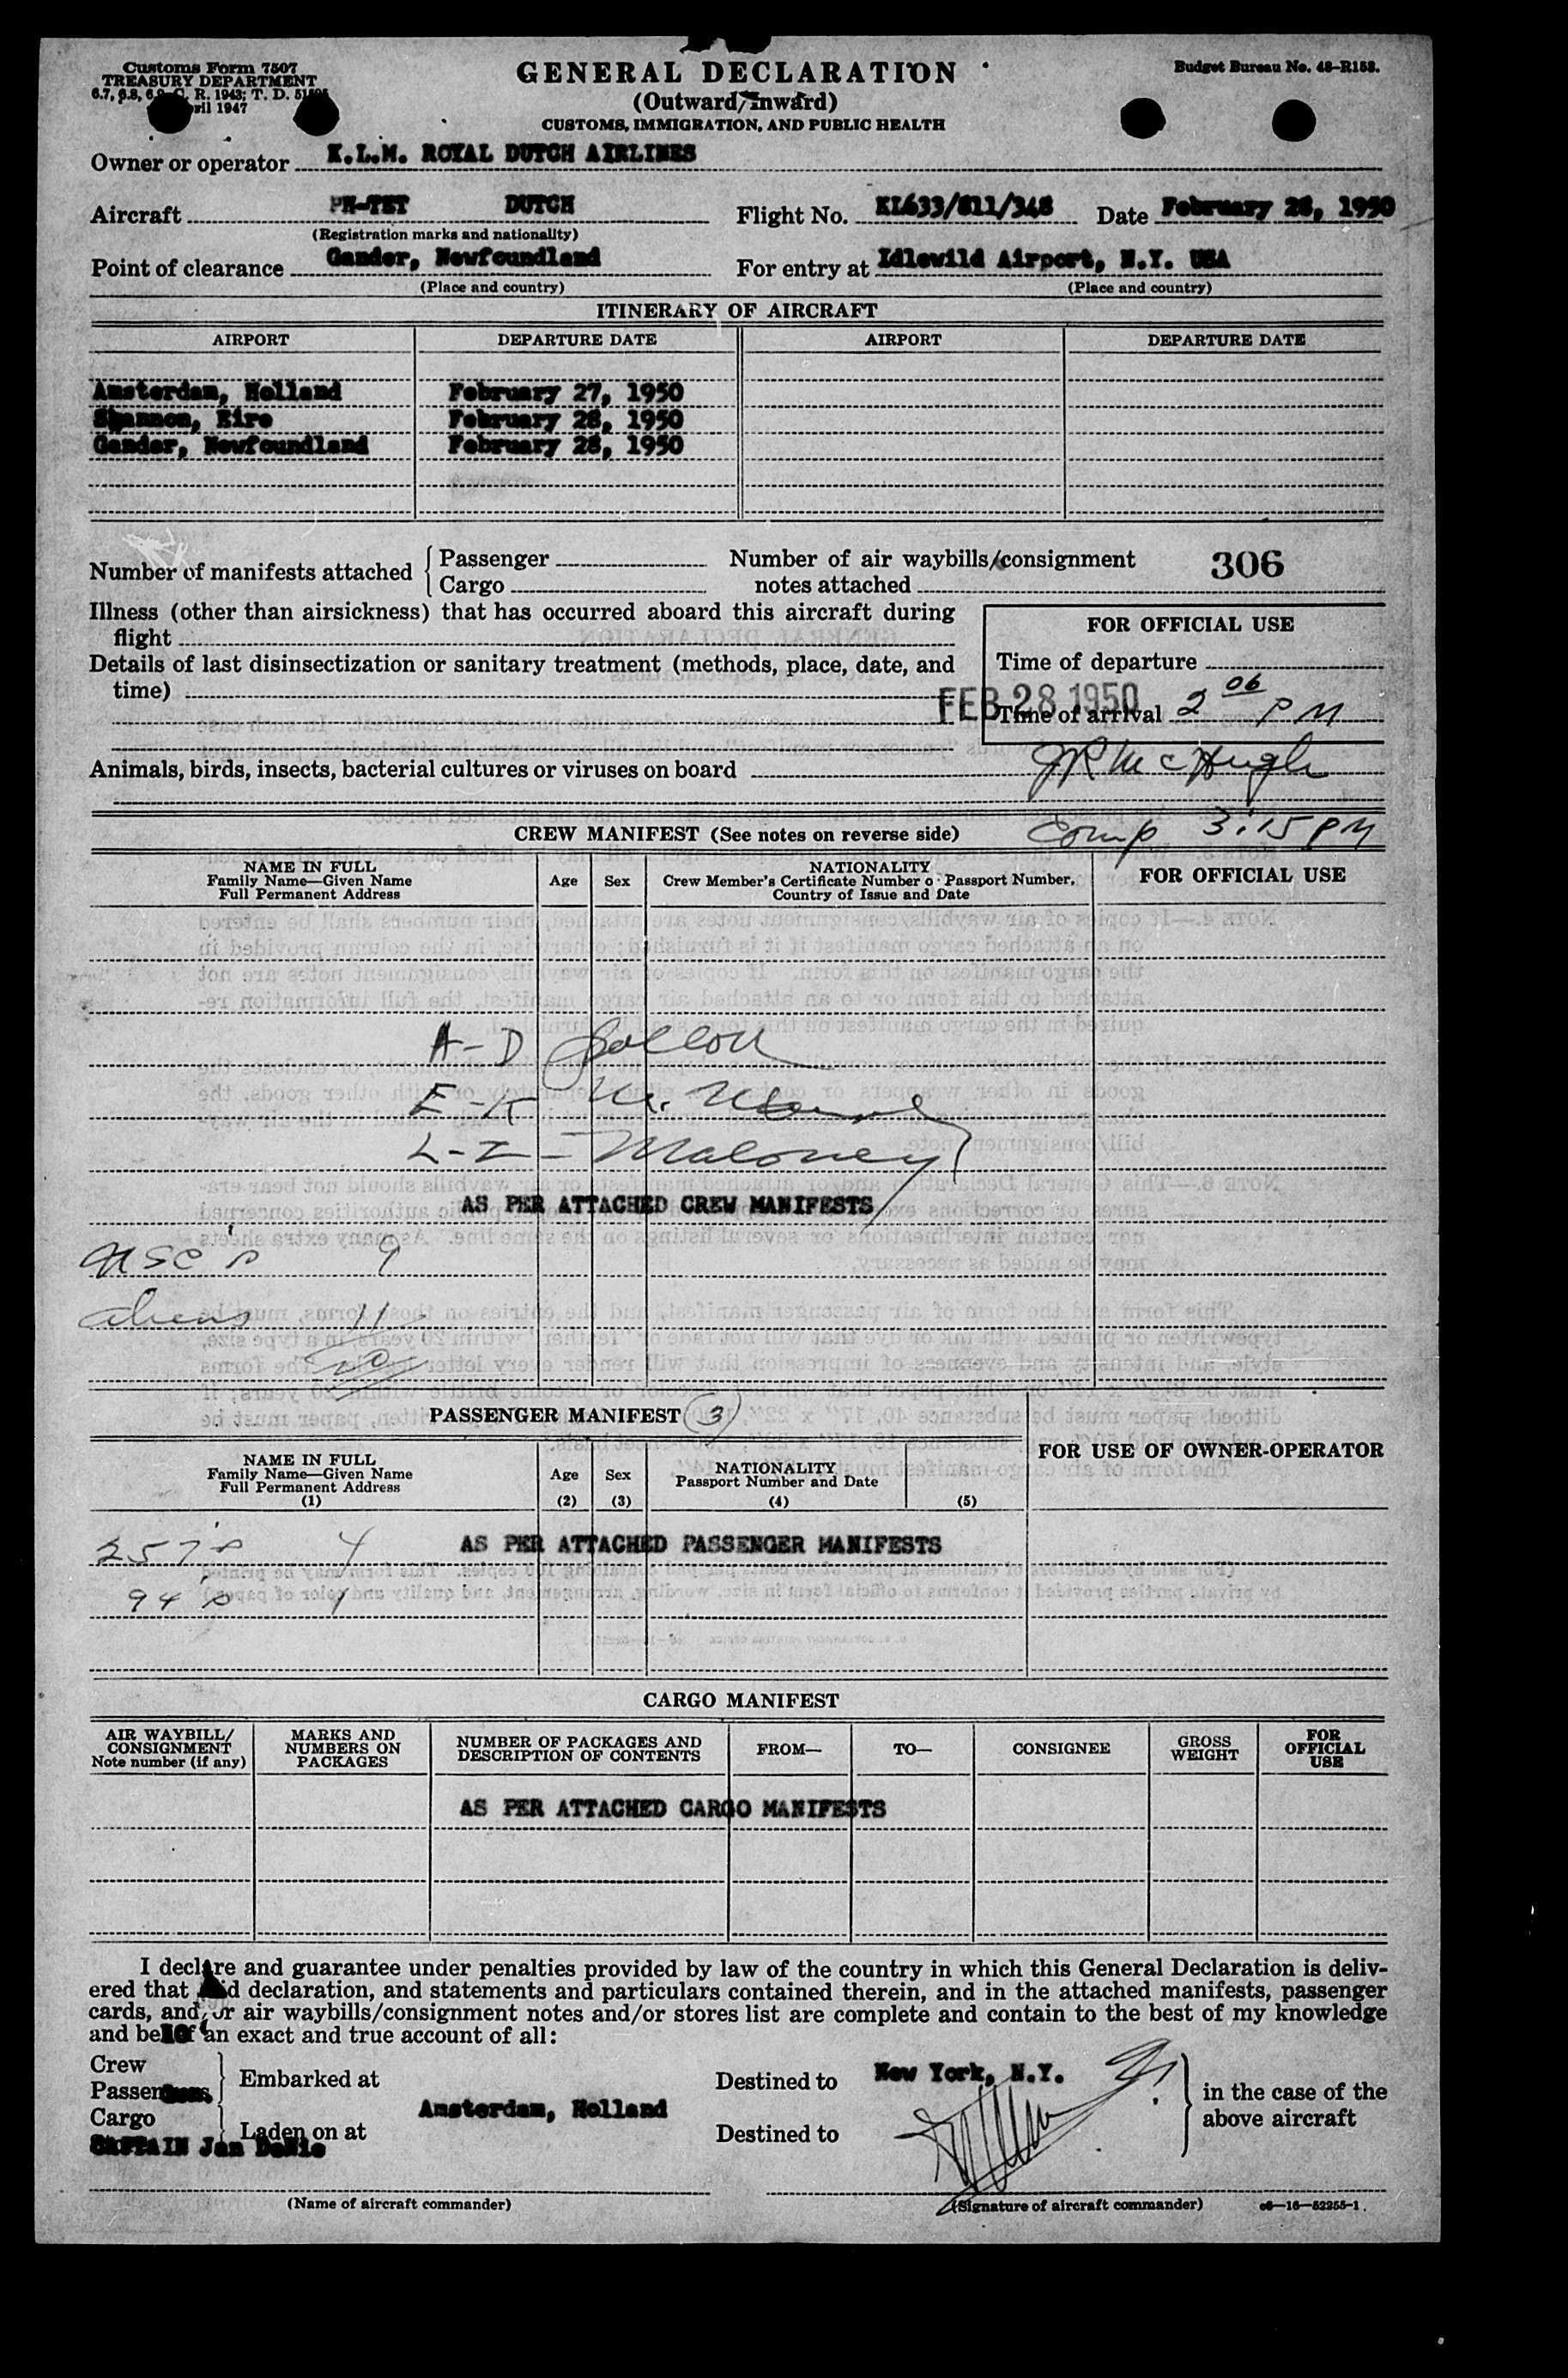 Customs Form 7507
TREASURY DEPARTMENT
6.7, 6.8, 6.9, C. R. 1943; T. D.
April 1947
GENERAL DECLARATION
(Outward/Inward)
CUSTOMS, IMMIGRATION, AND PUBLIC HEALTH
Budget Bureau No. 48-R158.
Owner or operator K.L.M. ROYAL DUTCH AIRLINES
Aircraft PH-TET DUTCH Flight No. KL633/811/348 Date February 28, 1950
(Registration marks and nationality)
Point of clearance Gander, Newfoundland For entry at Idlewild Airport, N.Y. USA
(Place and country) (Place and country)
ITINERARY OF AIRCRAFT
AIRPORT DEPARTURE DATE AIRPORT DEPARTURE DATE
Amsterdam, Holland February 27, 1950
Shannon, Eire February 28, 1950
Gander, Newfoundland February 28, 1950
Number of manifests attached { Passenger
Cargo
Number of air waybills/consignment
notes attached
306
Illness (other than airsickness) that has occurred aboard this aircraft during
flight
Details of last disinsectization or sanitary treatment (methods, place, date, and
time)
FOR OFFICIAL USE
Time of departure
FEB 28 1950
Time of arrival 2 06 PM
Animals, birds, insects, bacterial cultures or viruses on board
JR McHugh
Comp 3:15 PM
CREW MANIFEST (See notes on reverse side)
NAME IN FULL
Family Name—Given Name
Full Permanent Address
Age
Sex
NATIONALITY
Crew Member's Certificate Number or Passport Number,
Country of Issue and Date
FOR OFFICIAL USE
A-D
E-K
L-Z - Maloney
AS PER ATTACHED CREW MANIFESTS
USC's 9
aliens 11
20
PASSENGER MANIFEST (3)
NAME IN FULL
Family Name—Given Name
Full Permanent Address
(1)
Age
(2)
Sex
(3)
NATIONALITY
Passport Number and Date
(4) (5)
FOR USE OF OWNER-OPERATOR
257's 4 AS PER ATTACHED PASSENGER MANIFESTS
94's 1
CARGO MANIFEST
AIR WAYBILL/
CONSIGNMENT
Note number (if any)
MARKS AND
NUMBERS ON
PACKAGES
NUMBER OF PACKAGES AND
DESCRIPTION OF CONTENTS
FROM—
TO—
CONSIGNEE
GROSS
WEIGHT
FOR
OFFICIAL
USE
AS PER ATTACHED CARGO MANIFESTS
I declare and guarantee under penalties provided by law of the country in which this General Declaration is deliv-
ered that said declaration, and statements and particulars contained therein, and in the attached manifests, passenger
cards, and/or air waybills/consignment notes and/or stores list are complete and contain to the best of my knowledge
and belief an exact and true account of all:
Crew
Passengers
Embarked at
Cargo
Laden on at
Amsterdam, Holland
Destined to New York, N.Y.
Destined to
in the case of the
above aircraft
CAPTAIN Jan
(Name of aircraft commander)
(Signature of aircraft commander)
16—52255-1